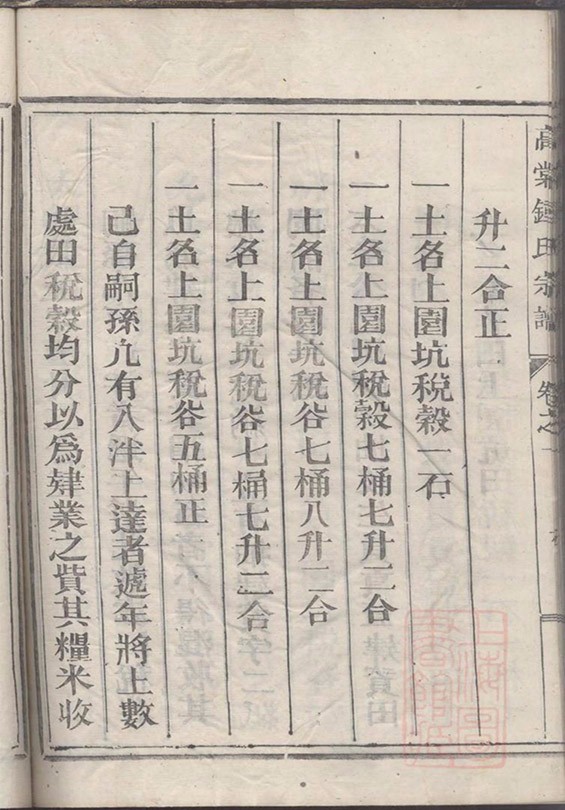 高棠鍾氏宗譜 卷之一
升二合正
一土名上園坑稅穀一石
一土名上園坑稅穀七桶七升二合
一土名上園坑稅谷七桶八升二合
一土名上園坑稅谷七桶七升二合
一土名上園坑稅谷五桶正
己自嗣孫凢有入泮上達者遞年將上數
處田稅穀均分以爲肄業之貲其糧米收